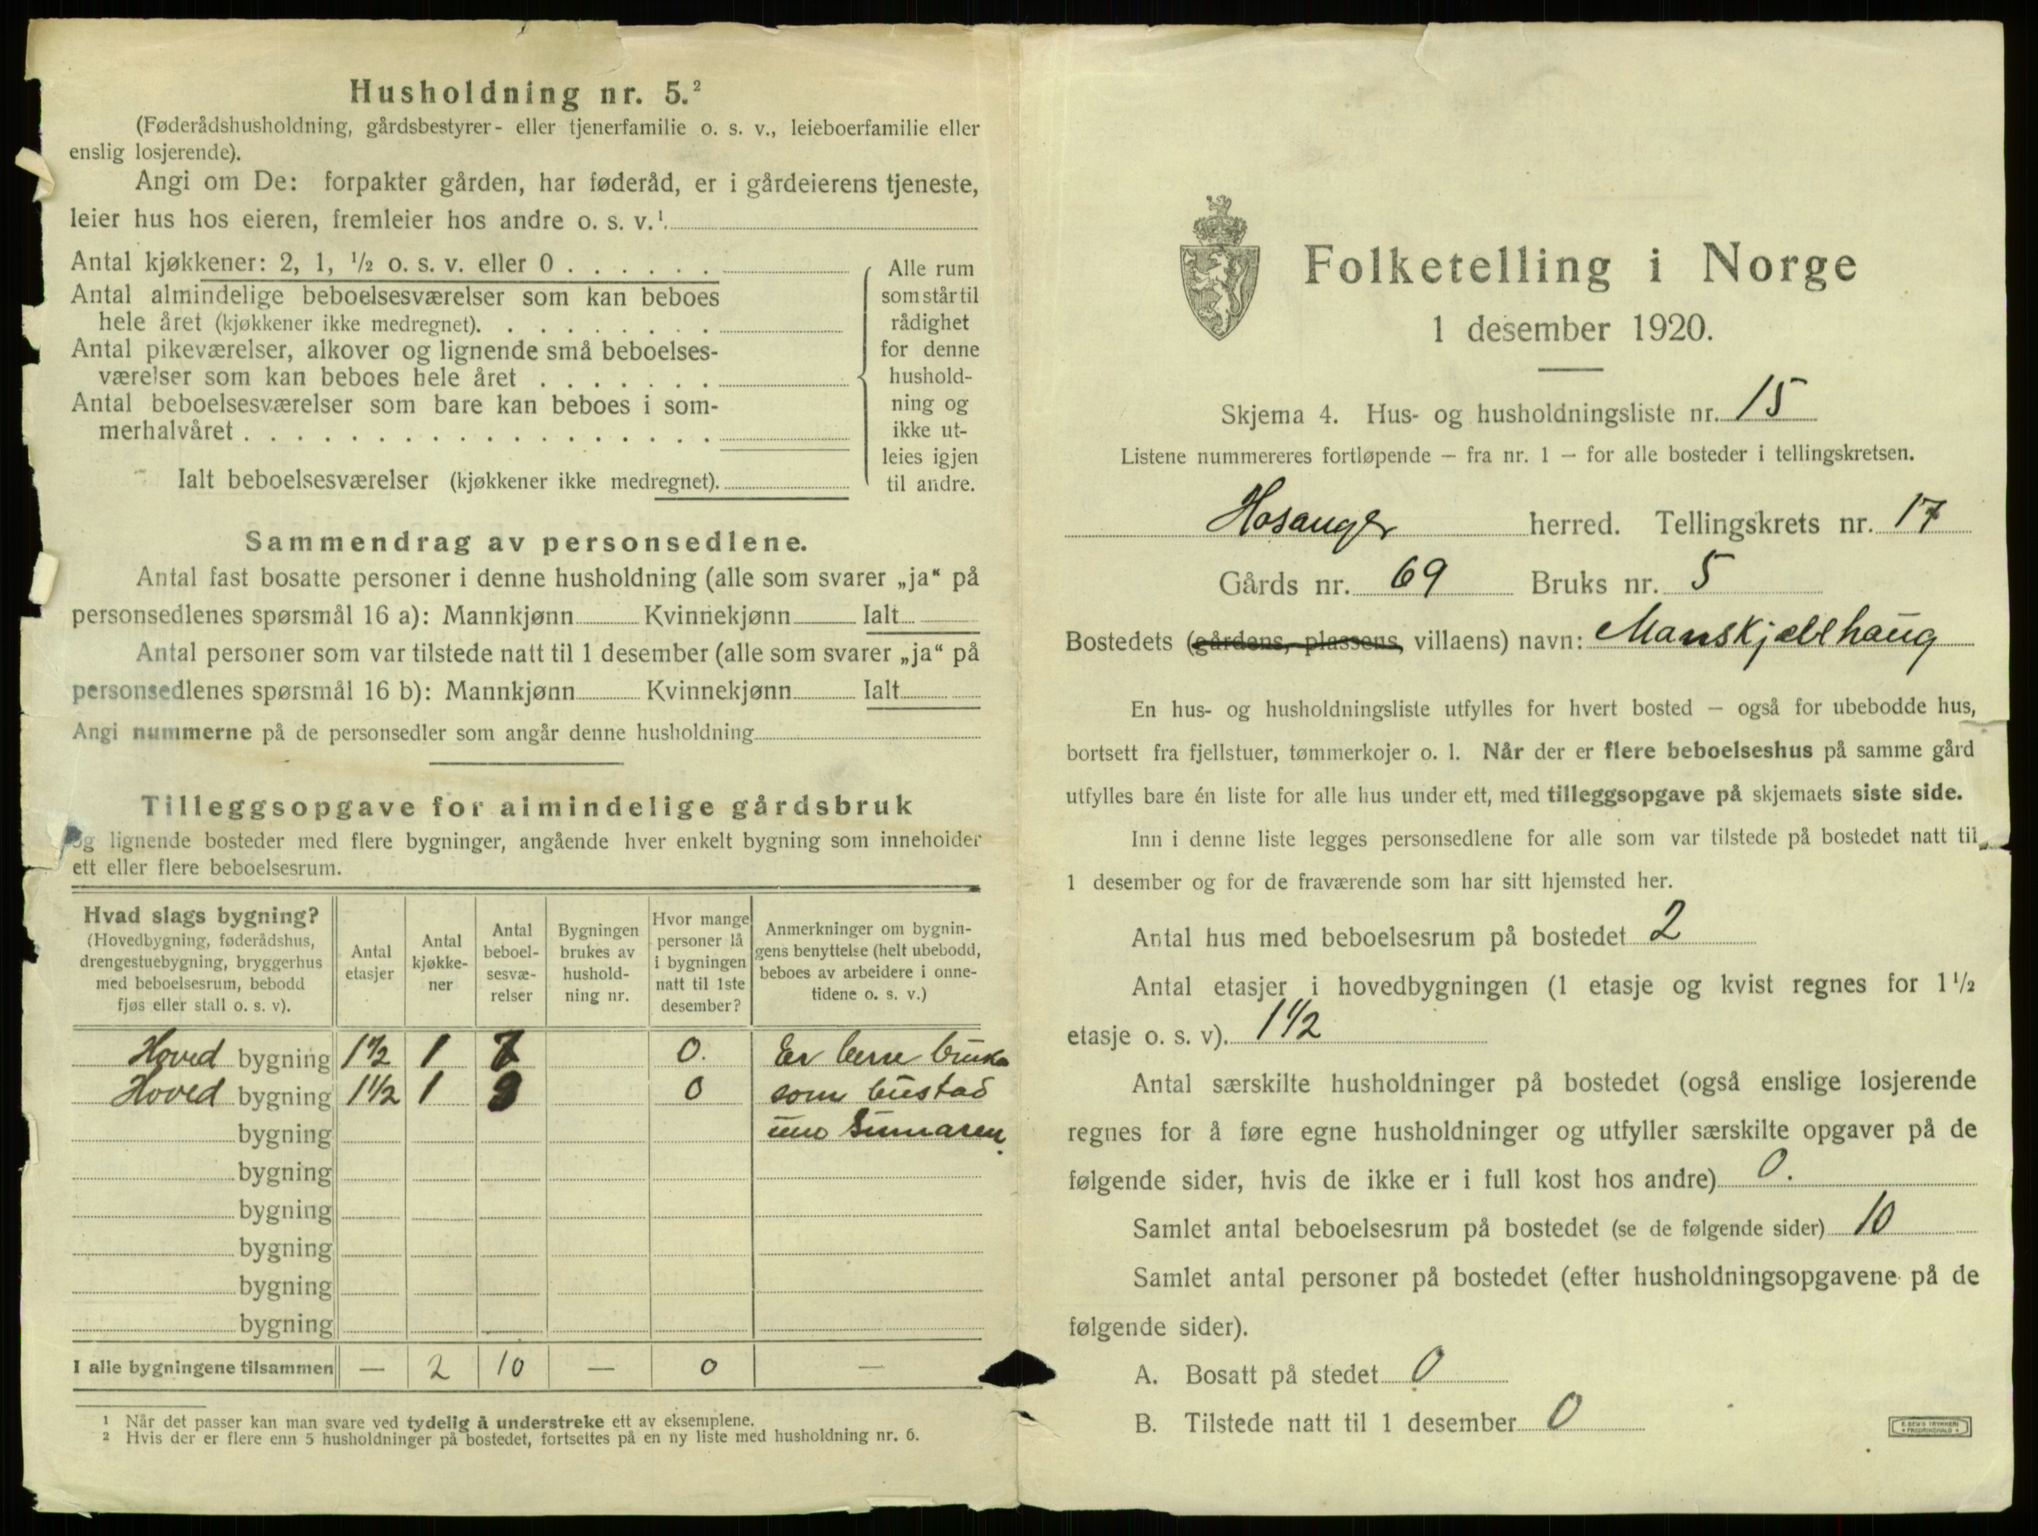 Husholdning nr. 5.²
(Føderådshusholdning, gårdsbestyrer- eller tjenerfamilie o. s. v., leieboerfamilie eller
enslig losjerende).
Angi om De: forpakter gården, har føderåd, er i gårdeierens tjeneste,
leier hus hos eieren, fremleier hos andre o. s. v.¹
Antal kjøkkener: 2, 1, ½ o. s. v. eller 0
Antal almindelige beboelsesværelser som kan beboes
hele året (kjøkkener ikke medregnet)
Antal pikeværelser, alkover og lignende små beboelses-
værelser som kan beboes hele året
Antal beboelsesværelser som bare kan beboes i som-
merhalvåret
Ialt beboelsesværelser (kjøkkener ikke medregnet)
Alle rum
som står til
rådighet
for denne
hushold-
ning og
ikke ut-
leies igjen
til andre.
Sammendrag av personsedlene.
Antal fast bosatte personer i denne husholdning (alle som svarer „ja“ på
personsedlenes spørsmål 16 a): Mannkjønn Kvinnekjønn Ialt
Antal personer som var tilstede natt til 1 desember (alle som svarer „ja“ på
personsedlenes spørsmål 16 b): Mannkjønn Kvinnekjønn Ialt
Angi nummerne på de personsedler som angår denne husholdning
Tilleggsopgave for almindelige gårdsbruk
og lignende bosteder med flere bygninger, angående hver enkelt bygning som inneholder
ett eller flere beboelsesrum.
Hvad slags bygning?
(Hovedbygning, føderådshus,
drengestuebygning, bryggerhus
med beboelsesrum, bebodd
fjøs eller stall o. s. v).
Antal
etasjer
Antal
kjøkke-
ner
Antal
beboel-
sesvæ-
relser
Bygningen
brukes av
hushold-
ning nr.
Hvor mange
personer lå
i bygningen
natt til 1ste
desember?
Anmerkninger om bygnin-
gens benyttelse (helt ubebodd,
beboes av arbeidere i onne-
tidene o. s. v.)
Hoved bygning 1½ 1 7 0. Er berre bruka
Hoved bygning 1½ 1 3 0 som bustad
bygning um Sumaren.
bygning
bygning
bygning
bygning
bygning
I alle bygningene tilsammen — 2 10 — 0 —
¹ Når det passer kan man svare ved tydelig å understreke ett av eksemplene.
² Hvis der er flere enn 5 husholdninger på bostedet, fortsettes på en ny liste med husholdning nr. 6.
Folketelling i Norge
1 desember 1920.
Skjema 4. Hus- og husholdningsliste nr. 15
Listene nummereres fortløpende – fra nr. 1 – for alle bosteder i tellingskretsen.
Hosanger herred. Tellingskrets nr. 17
Gårds nr. 69 Bruks nr. 5
Bostedets (gårdens, plassens, villaens) navn: Manskjælhaug
En hus- og husholdningsliste utfylles for hvert bosted – også for ubebodde hus,
bortsett fra fjellstuer, tømmerkojer o. l. Når der er flere beboelseshus på samme gård
utfylles bare én liste for alle hus under ett, med tilleggsopgave på skjemaets siste side.
Inn i denne liste legges personsedlene for alle som var tilstede på bostedet natt til
1 desember og for de fraværende som har sitt hjemsted her.
Antal hus med beboelsesrum på bostedet 2
Antal etasjer i hovedbygningen (1 etasje og kvist regnes for 1½
etasje o. s. v). 1½
Antal særskilte husholdninger på bostedet (også enslige losjerende
regnes for å føre egne husholdninger og utfyller særskilte opgaver på de
følgende sider, hvis de ikke er i full kost hos andre) 0.
Samlet antal beboelsesrum på bostedet (se de følgende sider) 10
Samlet antal personer på bostedet (efter husholdningsopgavene på de
følgende sider).
A. Bosatt på stedet 0
B. Tilstede natt til 1 desember 0
E. SEM'S TRYKKERI
FREDRIKSHALD